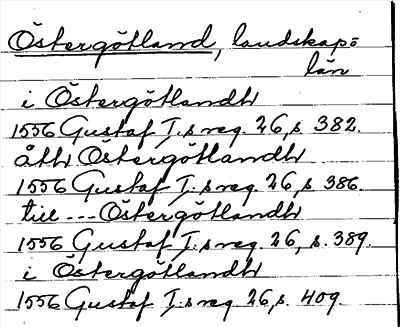 Östergötland, landskap o
län
i Östergötlandh
1556 Gustaf I.s reg. 26, s. 382.
åth Östergötlandh
1556 Gustaf I.s reg. 26, s. 386.
till --- Östergötlandh
1556 Gustaf I.s reg. 26, s. 389.
i Östergötlandh
1556 Gustaf I.s reg. 26, s. 409.